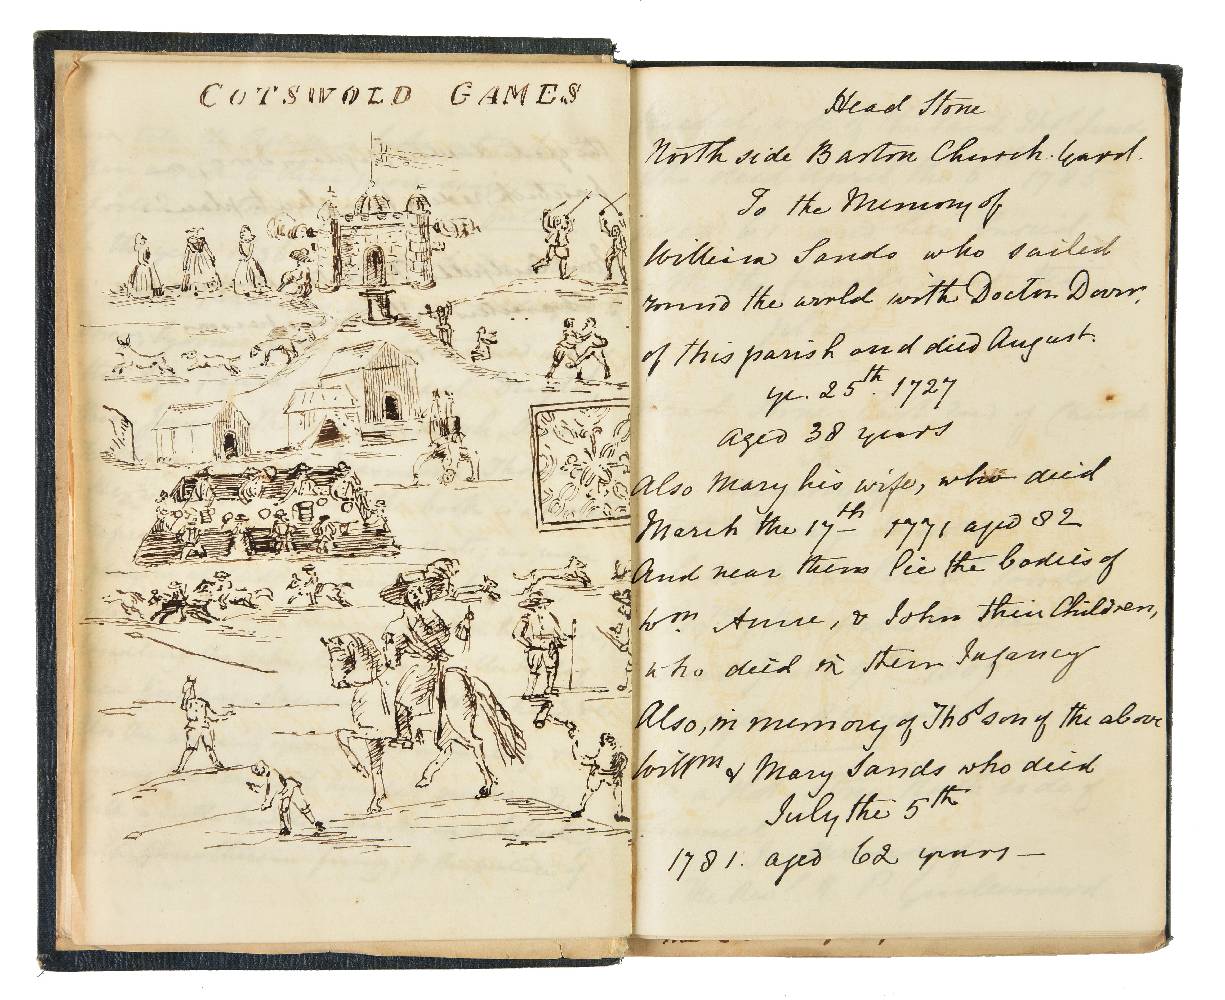 COTSWOLD GAMES
Head Stone
North side Barton Church. Yard.
To the Memory of
William Sands who sailed
round the world with Doctor Dover,
of this parish and died August.
ye. 25th. 1727
aged 38 years
Also Mary his wife, who died
March the 17th 1771 aged 82
And near them lie the bodies of
Wm Anne, & John their Children,
who died in their Infancy
Also, in memory of Thos son of the above
Willm & Mary Sands who died
July the 5th
1781. aged 62 years—